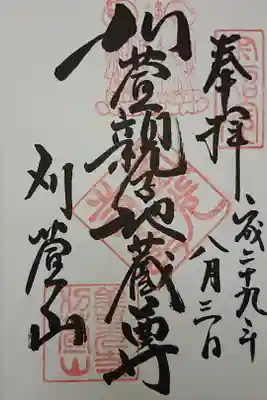 奉拝
平成二十九年
八月三日
刈萱親子地蔵尊
刈萱山